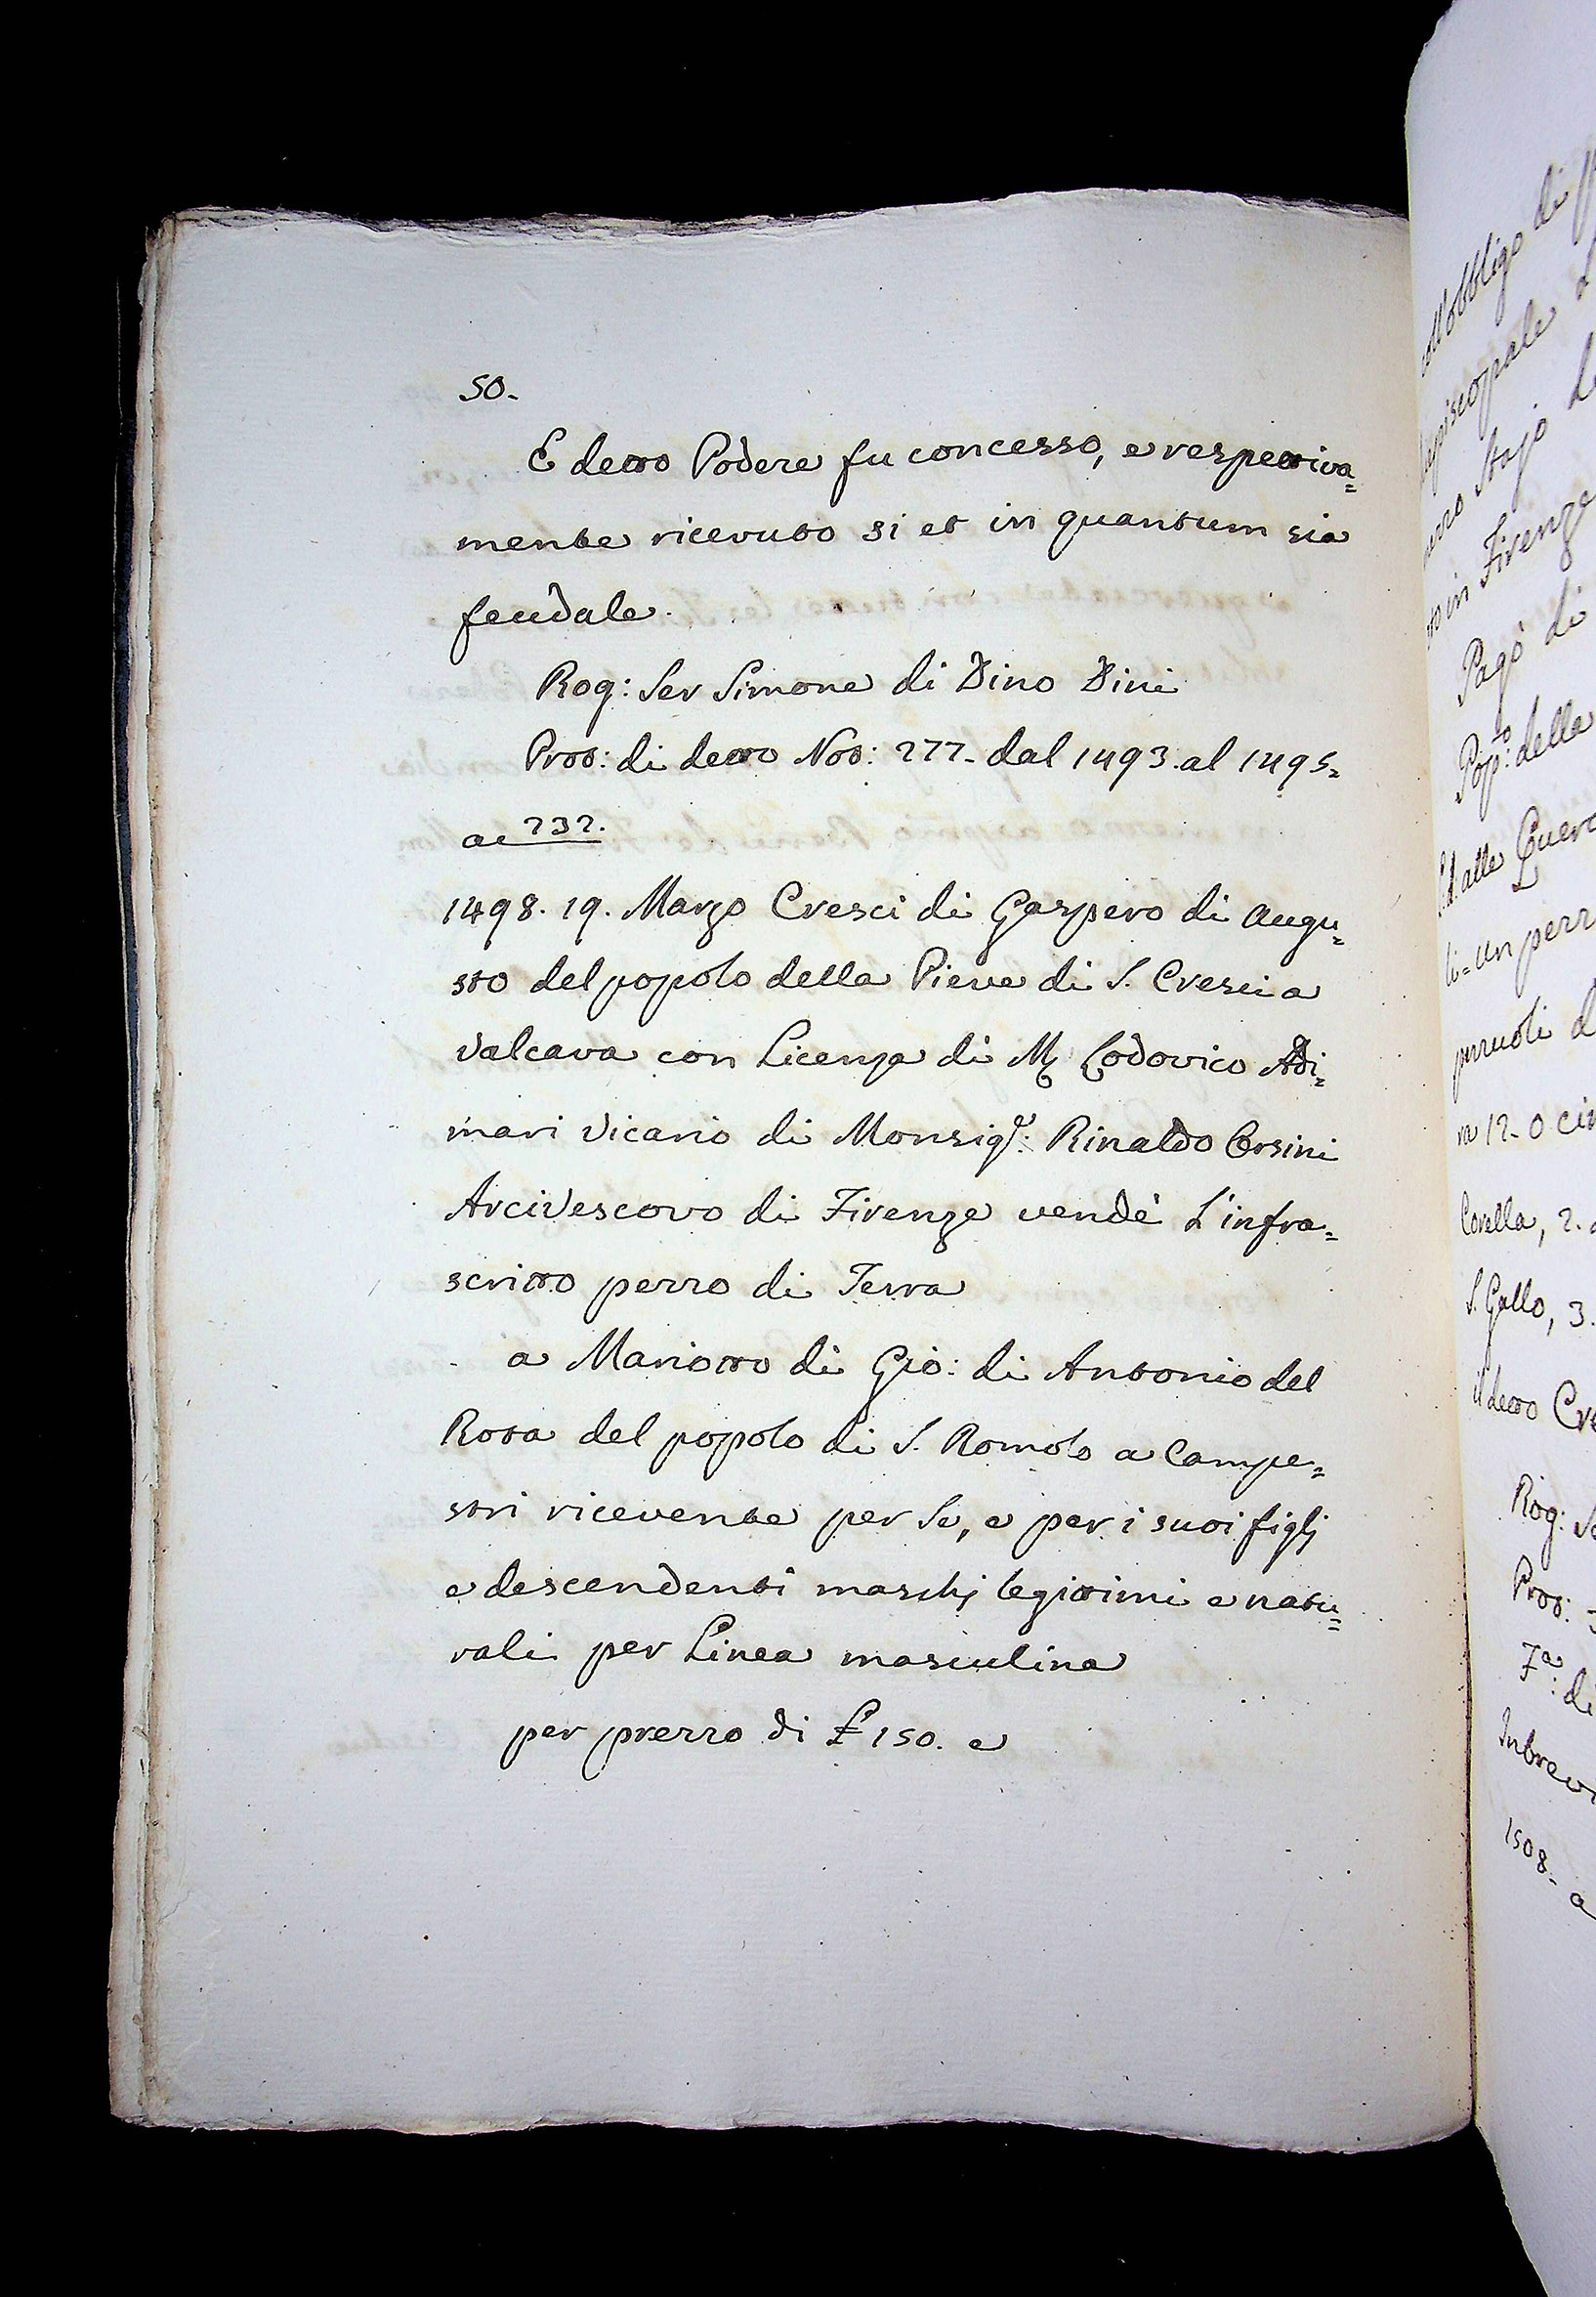 50.
E detto Podere fu concesso, e respettiva=
mente ricevuto si et in quantum sia
feudale.
Rog: Ser Simone di Dino Dini
Prot: di detto Not: 277. dal 1493. al 1495=
ac 232.
1498. 19. Marzo Cresci di Gaspero di Augu=
sto del popolo della Pieve di S. Cresci a
Valcava con Licenza di M Lodovico Adi=
mari Vicario di Monsigr: Rinaldo Orsini
Arcivescovo di Firenze vendè L'infra=
scritto pezzo di Terra
a Mariotto di Gio: di Antonio del
Rosa del popolo di S. Romolo a Campe=
stri ricevente per Se, e per i suoi figlj
e descendenti maschj legittimi e natu=
rali per Linea masculina
per prezzo di £ 150. e
coll'obbligo di
pezzo Stajo
in Firenze
Pagò di
Popo: della
un pezz
Corella, 2.
S. Gallo, 3.
il detto
Rog:
Prot:
Fa: di
1508.